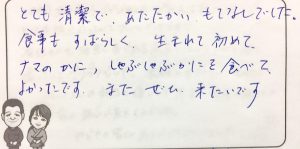 とても清潔で、あたたかい、もてなしでした、
食事もすばらしく、生まれて初めて、
ナマのかに、しゃぶしゃぶかにを食べて、
よかったです。また ぜひ 来たいです